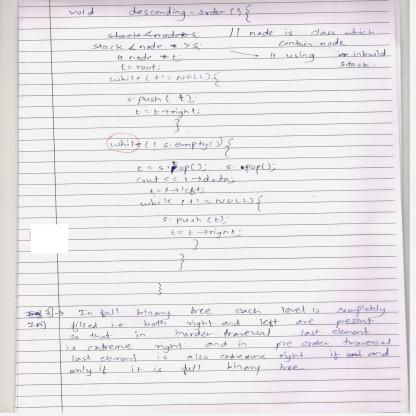 void descending-order(){
stack<node> s; // node is class which
stack <node *> s; contain node
node *t; // using inbuild
t = root; stack.
while(t != NULL){
s.push(t);
t = t→right;
}
while(! s.empty()){
t = s.top(); s.pop();
cout << t→data;
t = t→left;
while(t != NULL){
s.push(t);
t = t→right;
}
}
}
3]→ In full binary tree each level is completely
filled i.e. both right and left are present
so that in inorder traversal last element
is extreme right. and in pre order traversal
last element is also extreme right if and
only if it is full binary tree